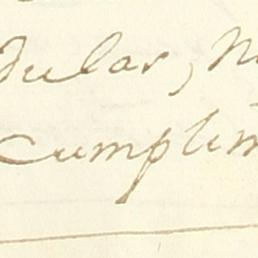 dular, n
cumplim